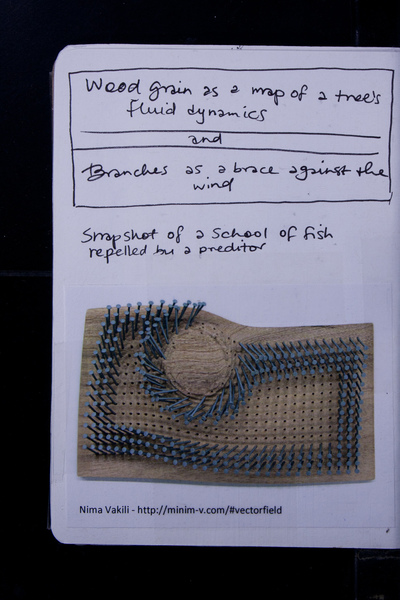 Wood grain as a map of a tree's
fluid dynamics
and
Branches as a brace against the
wind
Snapshot of a School of fish
repelled by a preditor
Nima Vakili - http://minim-v.com/#vectorfield